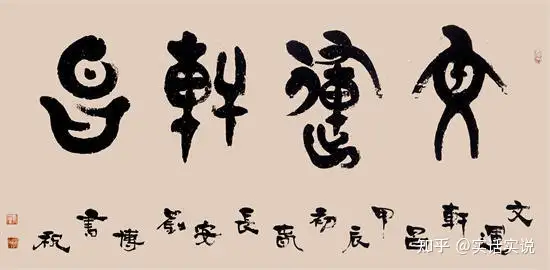 文運軒昌
文運軒昌甲辰初商長安劉博書祝
知乎 @实话实说